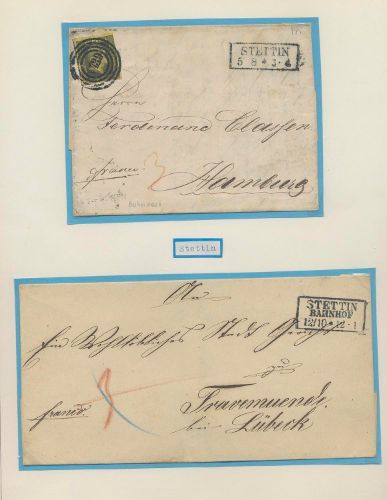 STETTIN
5 8 * 3-4
Herrn
Ferdinand Classen
franco
3
Hamburg
Stettin
An
STETTIN
BAHNHOF
12/10 * 12-1
Ein Wohllöbliches Stadt Gericht
zu
franco
Travemuende
bei Lübeck